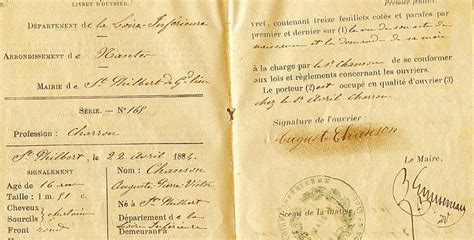 LIVRET D'OUVRIER.
DÉPARTEMENT de la Loire-Inférieure
ARRONDISSEMENT de Nantes
MAIRIE de St Philbert de Gd Lieu
SÉRIE. — N° 168
Profession : Charron
St Philbert, 22 Avril 1884.
SIGNALEMENT
Age de 16 ans
Taille : 1 m. 51 c.
Cheveux
Sourcils
Front rond
Nom : Chanson
Auguste Pierre Victor
Né à St Philbert
Département de la
Loire Inférieure
Demeurant à
Premier feuillet.
vret, contenant treize feuillets cotés et parafés par
premier et dernier sur (1) le vu de son acte de
naissance et la demande de sa mère
à la charge par le Sr Chanson de se conformer
aux lois et règlements concernant les ouvriers.
Le porteur (2) est occupé en qualité d'ouvrier (3)
chez le Sr Avril charron
Signature de l'ouvrier :
Auguste Chanson
Le Maire,
Sceau de la mairie